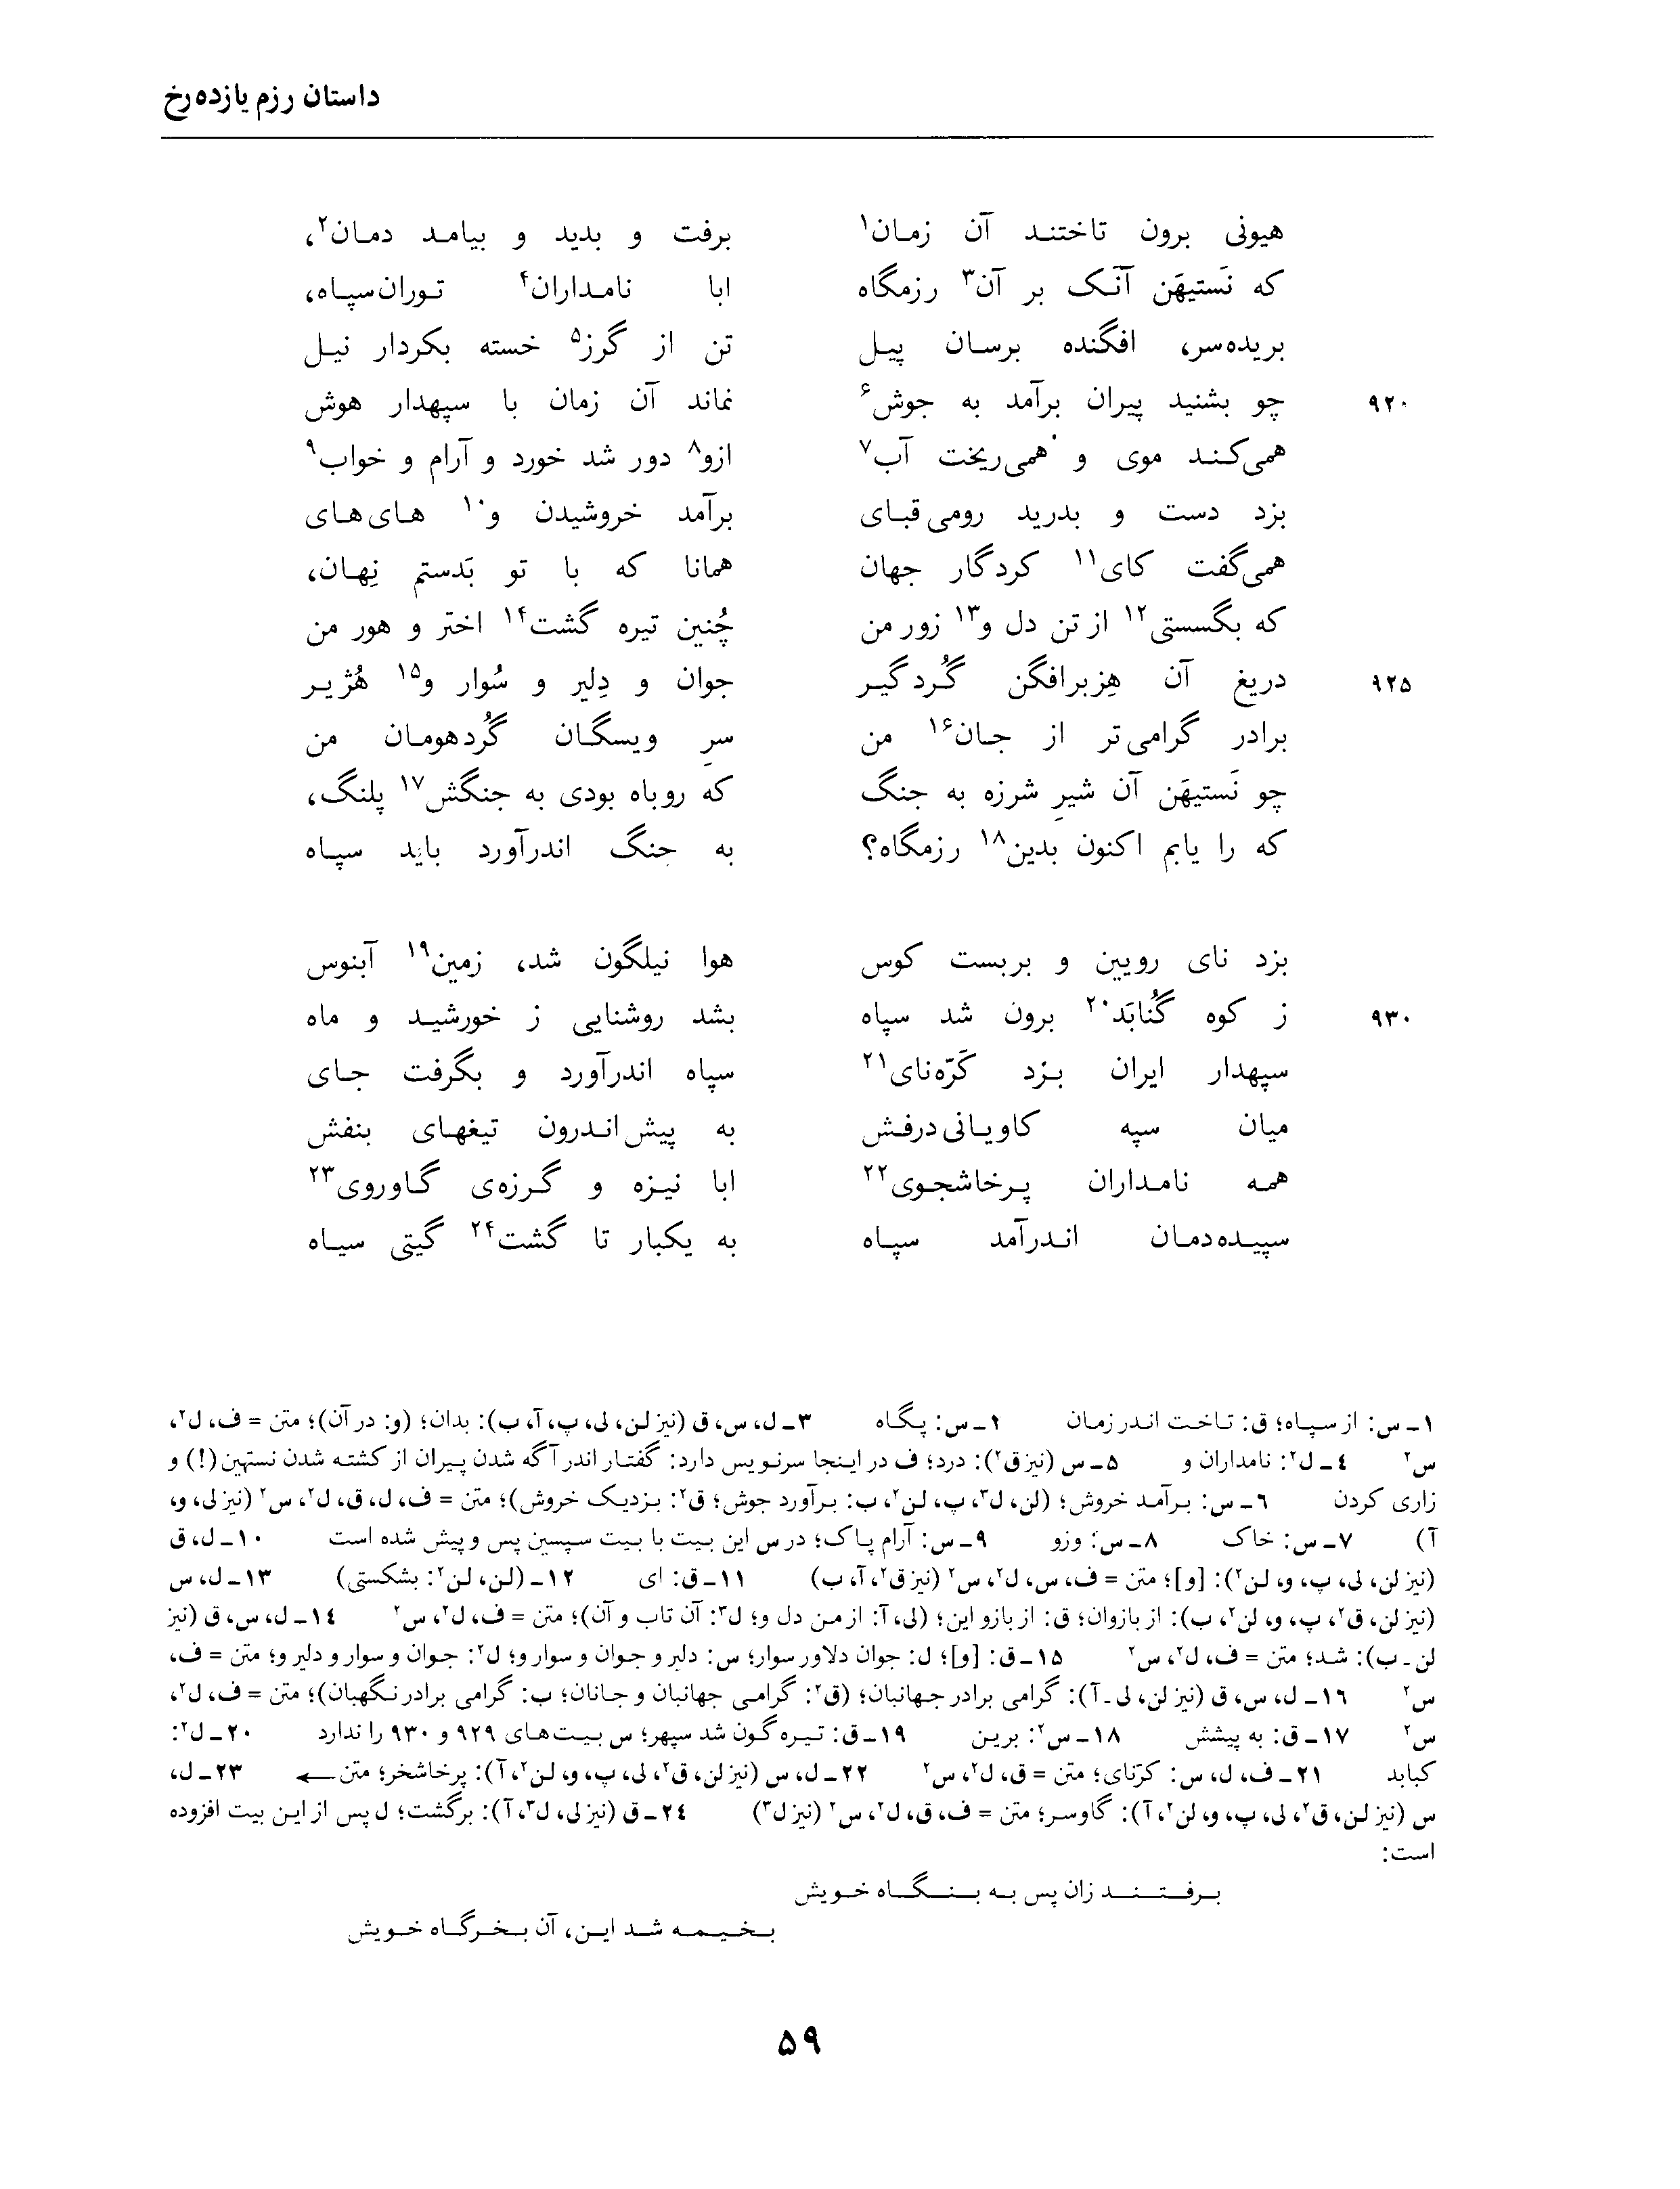 داستان رزم یازده‌رخ
هیونی برون تاختند آن زمان۱ برفت و بدید و بیامد دمان۲،
که نَستیهَن آنَک بر آن۳ رزمگاه ابا نامداران۴ توران‌سپاه،
بریده‌سر، افگنده برسان پیل تن از گرز۵ خسته بکردار نیل
۹۲۰ چو بشنید پیران برآمد به جوش۶ نماند آن زمان با سپهدار هوش
همی‌کند موی و همی‌ریخت آب۷ ازو۸ دور شد خورد و آرام و خواب۹
بزد دست و بدرید رومی‌قبای برآمد خروشیدن و۱۰ های‌های
همی‌گفت کای۱۱ کردگار جهان همانا که با تو بَدستم نِهان،
که بگسستی۱۲ از تن دل و۱۳ زور من چُنین تیره گشت۱۴ اختر و هور من
۹۲۵ دریغ آن هِزبرافگن گُردگیر جوان و دِلیر و سُوار و۱۵ هُژیر
برادر گرامی‌تر از جان۱۶ من سرِ ویسگان گُردهومان من
چو نَستیهَن آن شیرِ شرزه به جنگ که روباه بودی به جنگش۱۷ پلنگ،
که را یابم اکنون بدین۱۸ رزمگاه؟ به جنگ اندرآورد باید سپاه
بزد نای رویین و بربست کوس هوا نیلگون شد، زمین۱۹ آبنوس
۹۳۰ ز کوه گُنابَد۲۰ برون شد سپاه بشد روشنایی ز خورشید و ماه
سپهدار ایران بزد کَرّه‌نای۲۱ سپاه اندرآورد و بگرفت جای
میان سپه کاویانی‌درفش به پیش‌اندرون تیغهای بنفش
همه نامداران پرخاشجوی۲۲ ابا نیزه و گرزه‌ی گاوروی۲۳
سپیده‌دمان اندرآمد سپاه به یکبار تا گشت۲۴ گیتی سیاه
۱ـ س: از سپاه؛ ق: تاخت اندر زمان ۲ـ س: پگاه ۳ـ ل، س، ق (نیز لن، لی، پ، آ، ب): بدان؛ (و: در آن)؛ متن = ف، ل۲،
س۲ ۴ـ ل۲: نامداران و ۵ـ س (نیز ق۲): درد؛ ف در اینجا سرنویس دارد: گفتار اندر آگه شدن پیران از کشته شدن نستهین(!) و
زاری کردن ۶ـ س: برآمد خروش؛ (لن، ل۳، پ، لن۲، ب: برآورد جوش؛ ق۲: بزدیک خروش)؛ متن = ف، ل، ق، ل۲، س۲ (نیز لی، و،
آ) ۷ـ س: خاک ۸ـ س: وزو ۹ـ س: آرام پاک؛ در س این بیت با بیت سپسین پس و پیش شده است ۱۰ـ ل، ق
(نیز لن، لی، پ، و، لن۲): [و]؛ متن = ف، س، ل۲، س۲ (نیز ق۲، آ، ب) ۱۱ـ ق: ای ۱۲ـ (لن، لن۲: بشکستی) ۱۳ـ ل، س
(نیز لن، ق۲، پ، و، لن۲، ب): از بازوان؛ ق: از بازو این؛ (لی، آ: از من دل و؛ ل۳: آن تاب و آن)؛ متن = ف، ل۲، س۲ ۱۴ـ ل، س، ق (نیز
لن ـ ب): شد؛ متن = ف، ل۲، س۲ ۱۵ـ ق: [و]؛ ل: جوان دلاور سوار؛ س: دلیر و جوان و سوار و؛ ل۲: جوان و سوار و دلیر و؛ متن = ف،
س۲ ۱۶ـ ل، س، ق (نیز لن، لی ـ آ): گرامی برادر جهانبان؛ (ق۲: گرامی جهانبان و جانان؛ ب: گرامی برادر نگهبان)؛ متن = ف، ل۲،
س۲ ۱۷ـ ق: به پیشش ۱۸ـ س۲: برین ۱۹ـ ق: تیره گون شد سپهر؛ س بیت‌های ۹۲۹ و ۹۳۰ را ندارد ۲۰ـ ل۲:
کبابد ۲۱ـ ف، ل، س: کرّنای؛ متن = ق، ل۲، س۲ ۲۲ـ ل، س (نیز لن، ق۲، لی، پ، و، لن۲، آ): پرخاشخر؛ متن ← ۲۳ـ ل،
س (نیز لن، ق۲، لی، پ، و، لن۲، آ): گاوسر؛ متن = ف، ق، ل۲، س۲ (نیز ل۳) ۲۴ـ ق (نیز لی، ل۳، آ): برگشت؛ ل پس از این بیت افزوده
است:
برفتند زان پس به بنگاه خویش
بخیمه شد این، آن بخرگاه خویش
۵۹